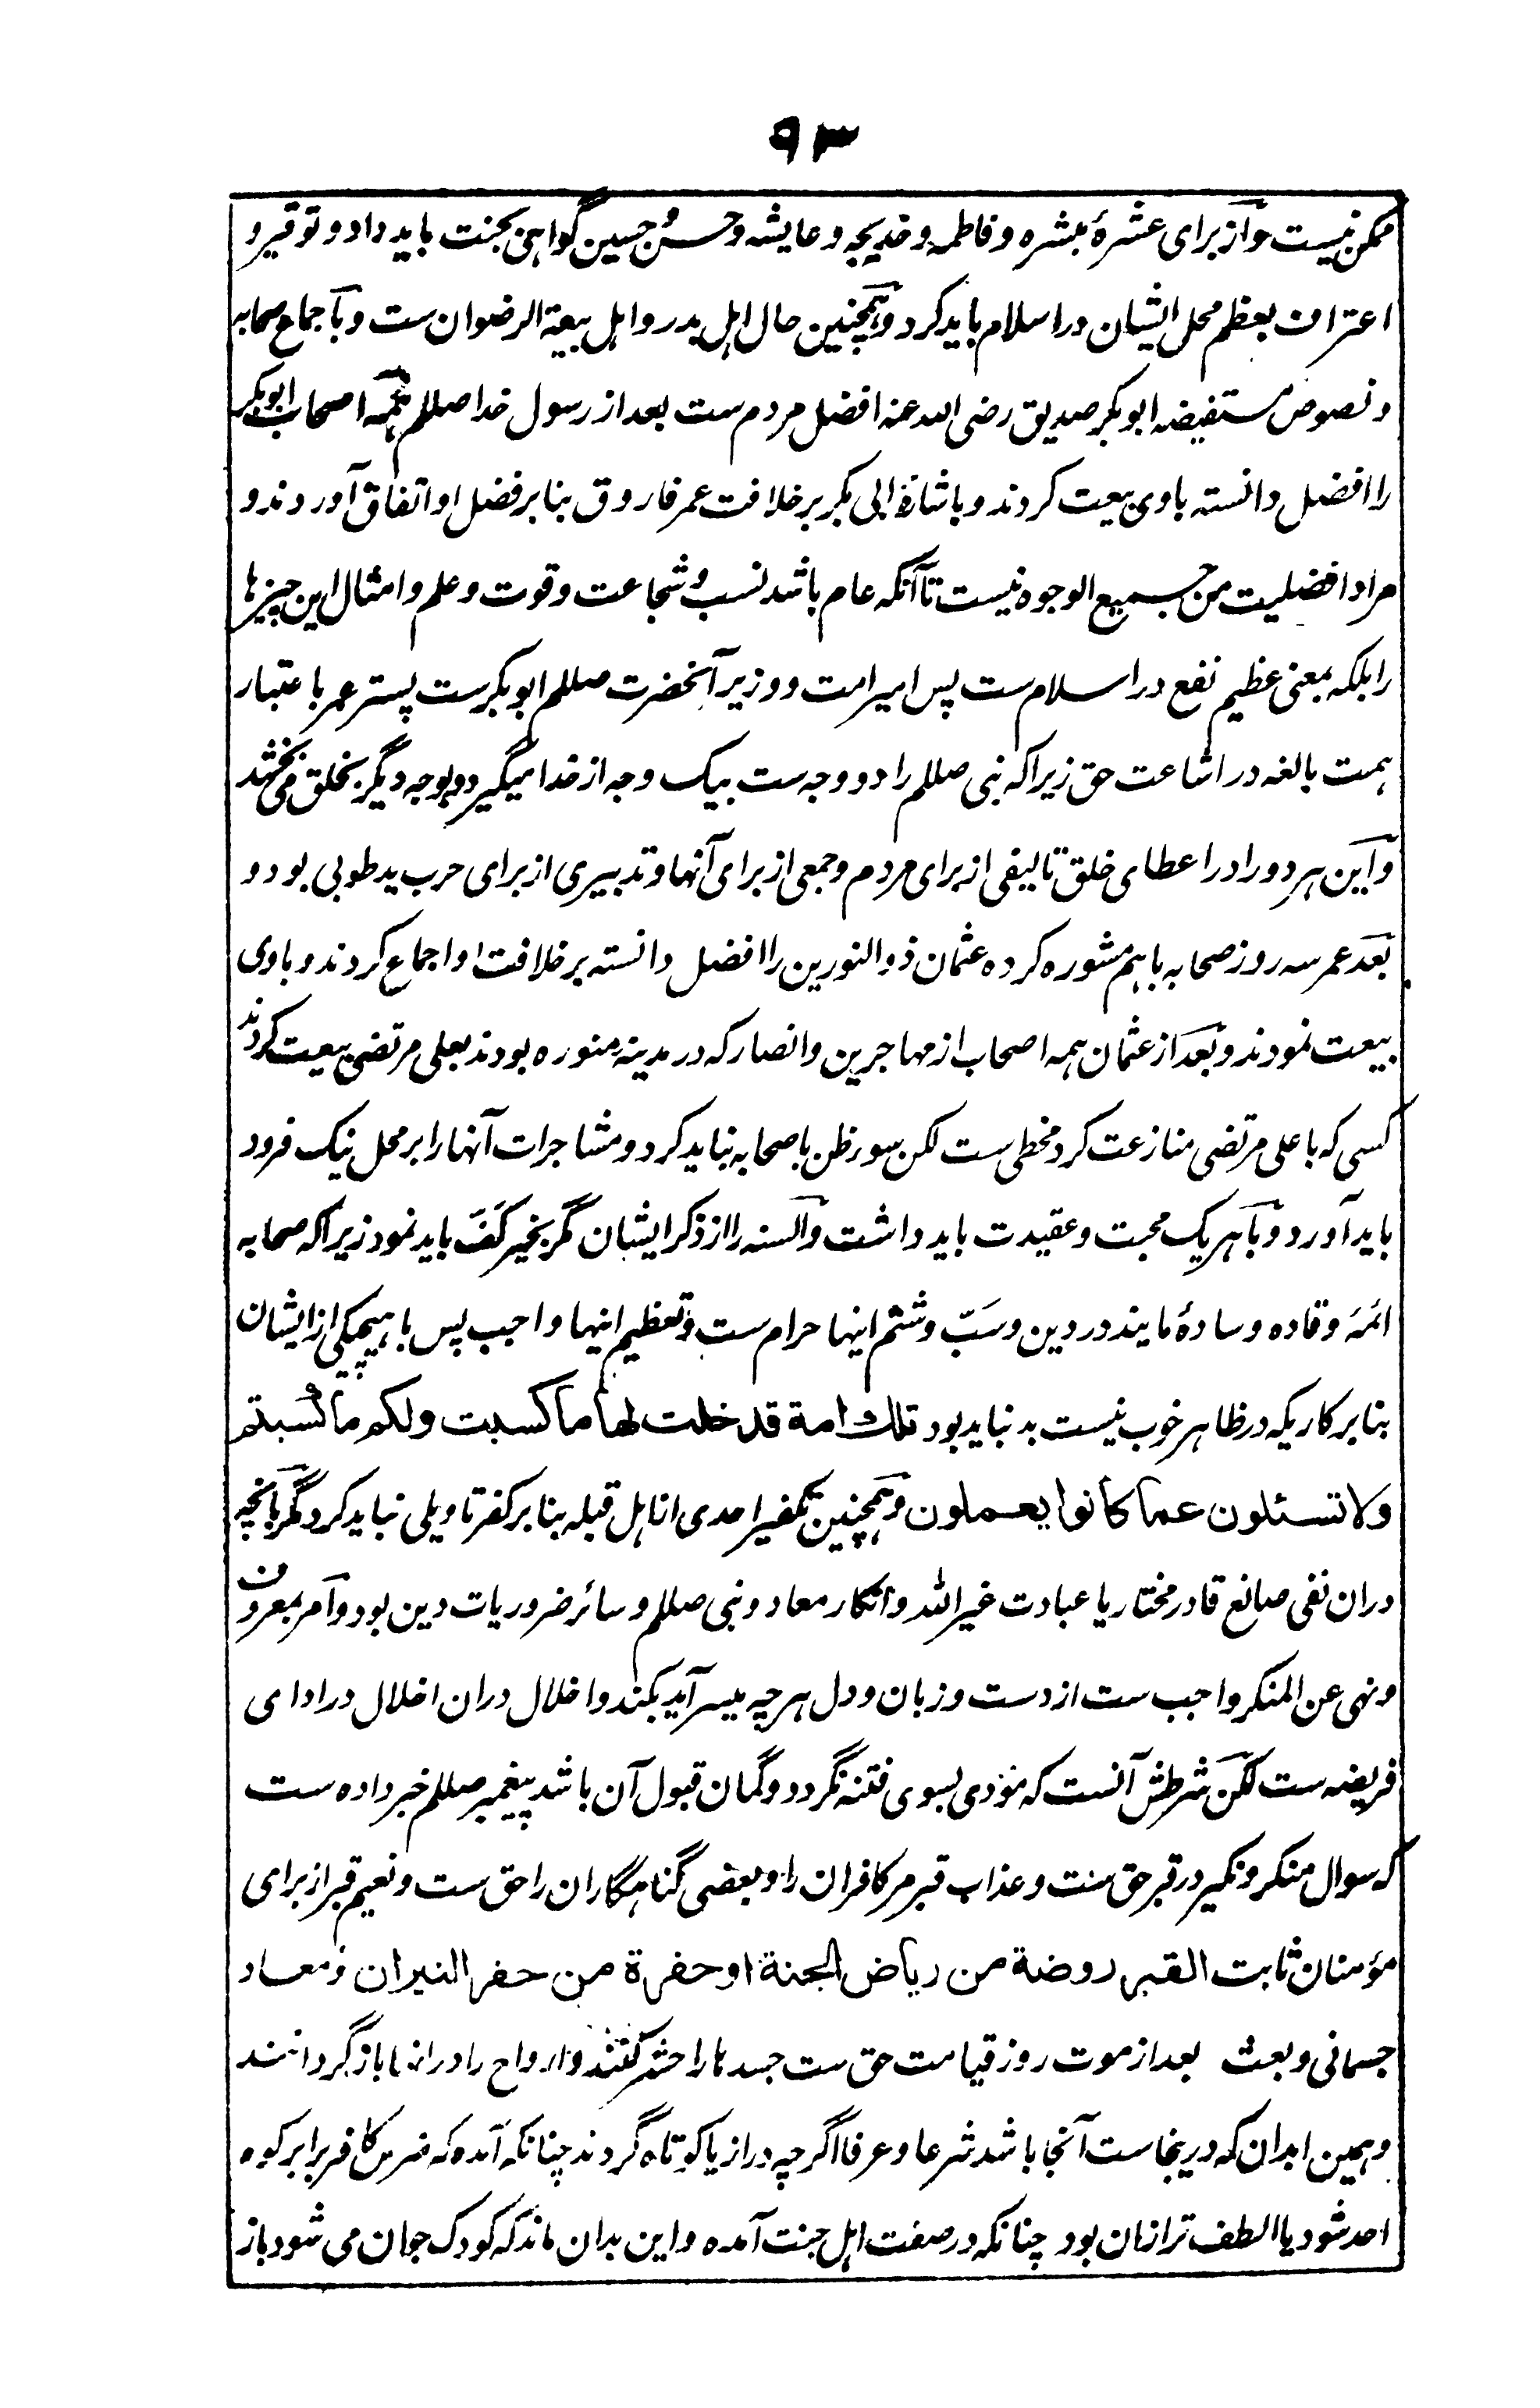 ۹۳
ممکن نیست و از برای عشرهٔ مبشره و فاطمه و خدیجه و عایشه و حسن و حسین گواهی بجنت باید داد و توقیر و
اعتراف بعظم محل ایشان در اسلام باید کرد و همچنین حال اهل بدر و اهل بیعة الرضوان ست و باجماع صحابه
و نصوص مستفیضه ابوبکر صدیق رضی الله عنه افضل مردم ست بعد از رسول خدا صللم همه اصحاب ابوبکر
را افضل دانسته باوی بیعت کردند و باشارهٔ ابی بکر بر خلافت عمر فاروق بنابر فضل او اتفاق آوردند و
مراد افضلیت من جمیع الوجوه نیست تا آنکه عام باشد نسب و شجاعت و قوت و علم و امثال این چیزها
را بلکه بمعنی عظیم نفع در اسلام ست پس امیر امت و وزیر آنحضرت صللم ابوبکر ست پستر عمر باعتبار
همت بالغه در اشاعت حق زیرا که نبی صللم را دو وجه ست بیک وجه از خدا میگیرد و بوجه دیگر بخلق می بخشد
و این هر دو را در اعطای خلق تالیفی از برای مردم و جمعی از برای آنها و تدبیری از برای حرب ید طولی بود و
بعد عمر سه روز صحابه باهم مشوره کرده عثمان ذو النورین را افضل دانسته بر خلافت او اجماع کردند و باوی
بیعت نمودند و بعد از عثمان همه اصحاب از مهاجرین و انصار که در مدینه منوره بودند بعلی مرتضی بیعت کردند
کسی که با علی مرتضی منازعت کرد مخطی ست لکن سوء ظن باصحابه نباید کرد و مشاجرات آنها را بر محل نیک فرود
باید آورد و با هر یک محبت و عقیدت باید داشت و السنه را از ذکر ایشان مگر بخیر کَفَ باید نمود زیرا که صحابه
ائمه و قاده و سادهٔ مایند در دین و سَبّ و شتم اینها حرام ست و تعظیم اینها واجب پس با هیچیکی از ایشان
بنابر کاریکه در ظاهر خوب نیست بد نباید بود تلك امة قد خلت لها ما كسبت ولكم ما كسبتم
ولا تسئلون عما كانوا يعملون و همچنین تکفیر احدی از اهل قبله بنابر کفر تاویلی نباید کرد مگر بآنچه
دران نفی صانع قادر مختار یا عبادت غیر الله و انکار معاد و نبی صللم و سائر ضروریات دین بود و امر بمعروف
و نهی عن المنکر واجب ست از دست و زبان و دل هر چه میسر آید بکند و اخلال دران اخلال در ادای
فریضه ست لکن شرطش آنست که مؤدی بسوی فتنه نگردد و گمان قبول آن باشد پیغمبر صللم خبر داده ست
که سوال منکر و نکیر در قبر حق ست و عذاب قبر مر کافران را و بعضی گناهگاران را حق ست و نعیم قبر از برای
مؤمنان ثابت القبر روضة من رياض الجنة او حفرة من حفر النيران و معاد
جسمانی و بعث بعد از موت روز قیامت حق ست جسدها را حشر کنند و ارواح را در انها باز گردانند
و همین ابدان که درینجاست آنجا باشد شرعا و عرفا اگرچه دراز یا کوتاه گردند چنانکه آمده که ضرس کافر برابر کوه
احد شود یا الطف تر ازان بود چنانکه در صفت اهل جنت آمده و این بدان ماند که کودک جوان می شود باز